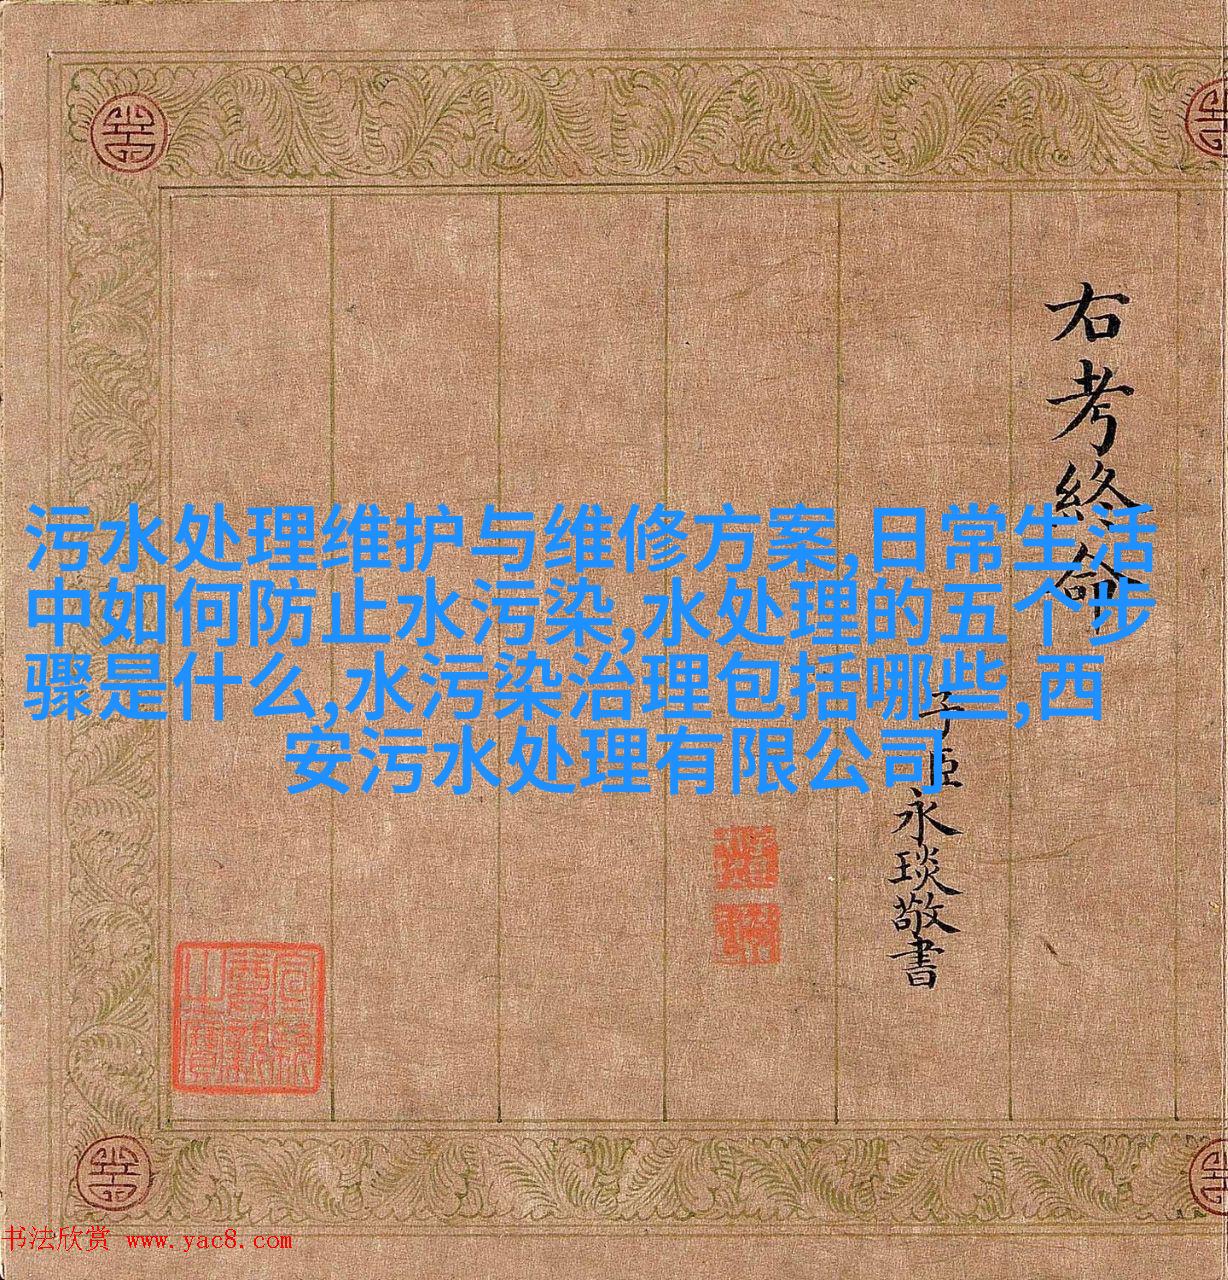 右考終命
子臣永琰敬書
污水处理维护与维修方案,日常生活
中如何防止水污染,水处理的五个步
骤是什么,水污染治理包括哪些,西
安污水处理有限公司
书法欣赏 www.yac8.com